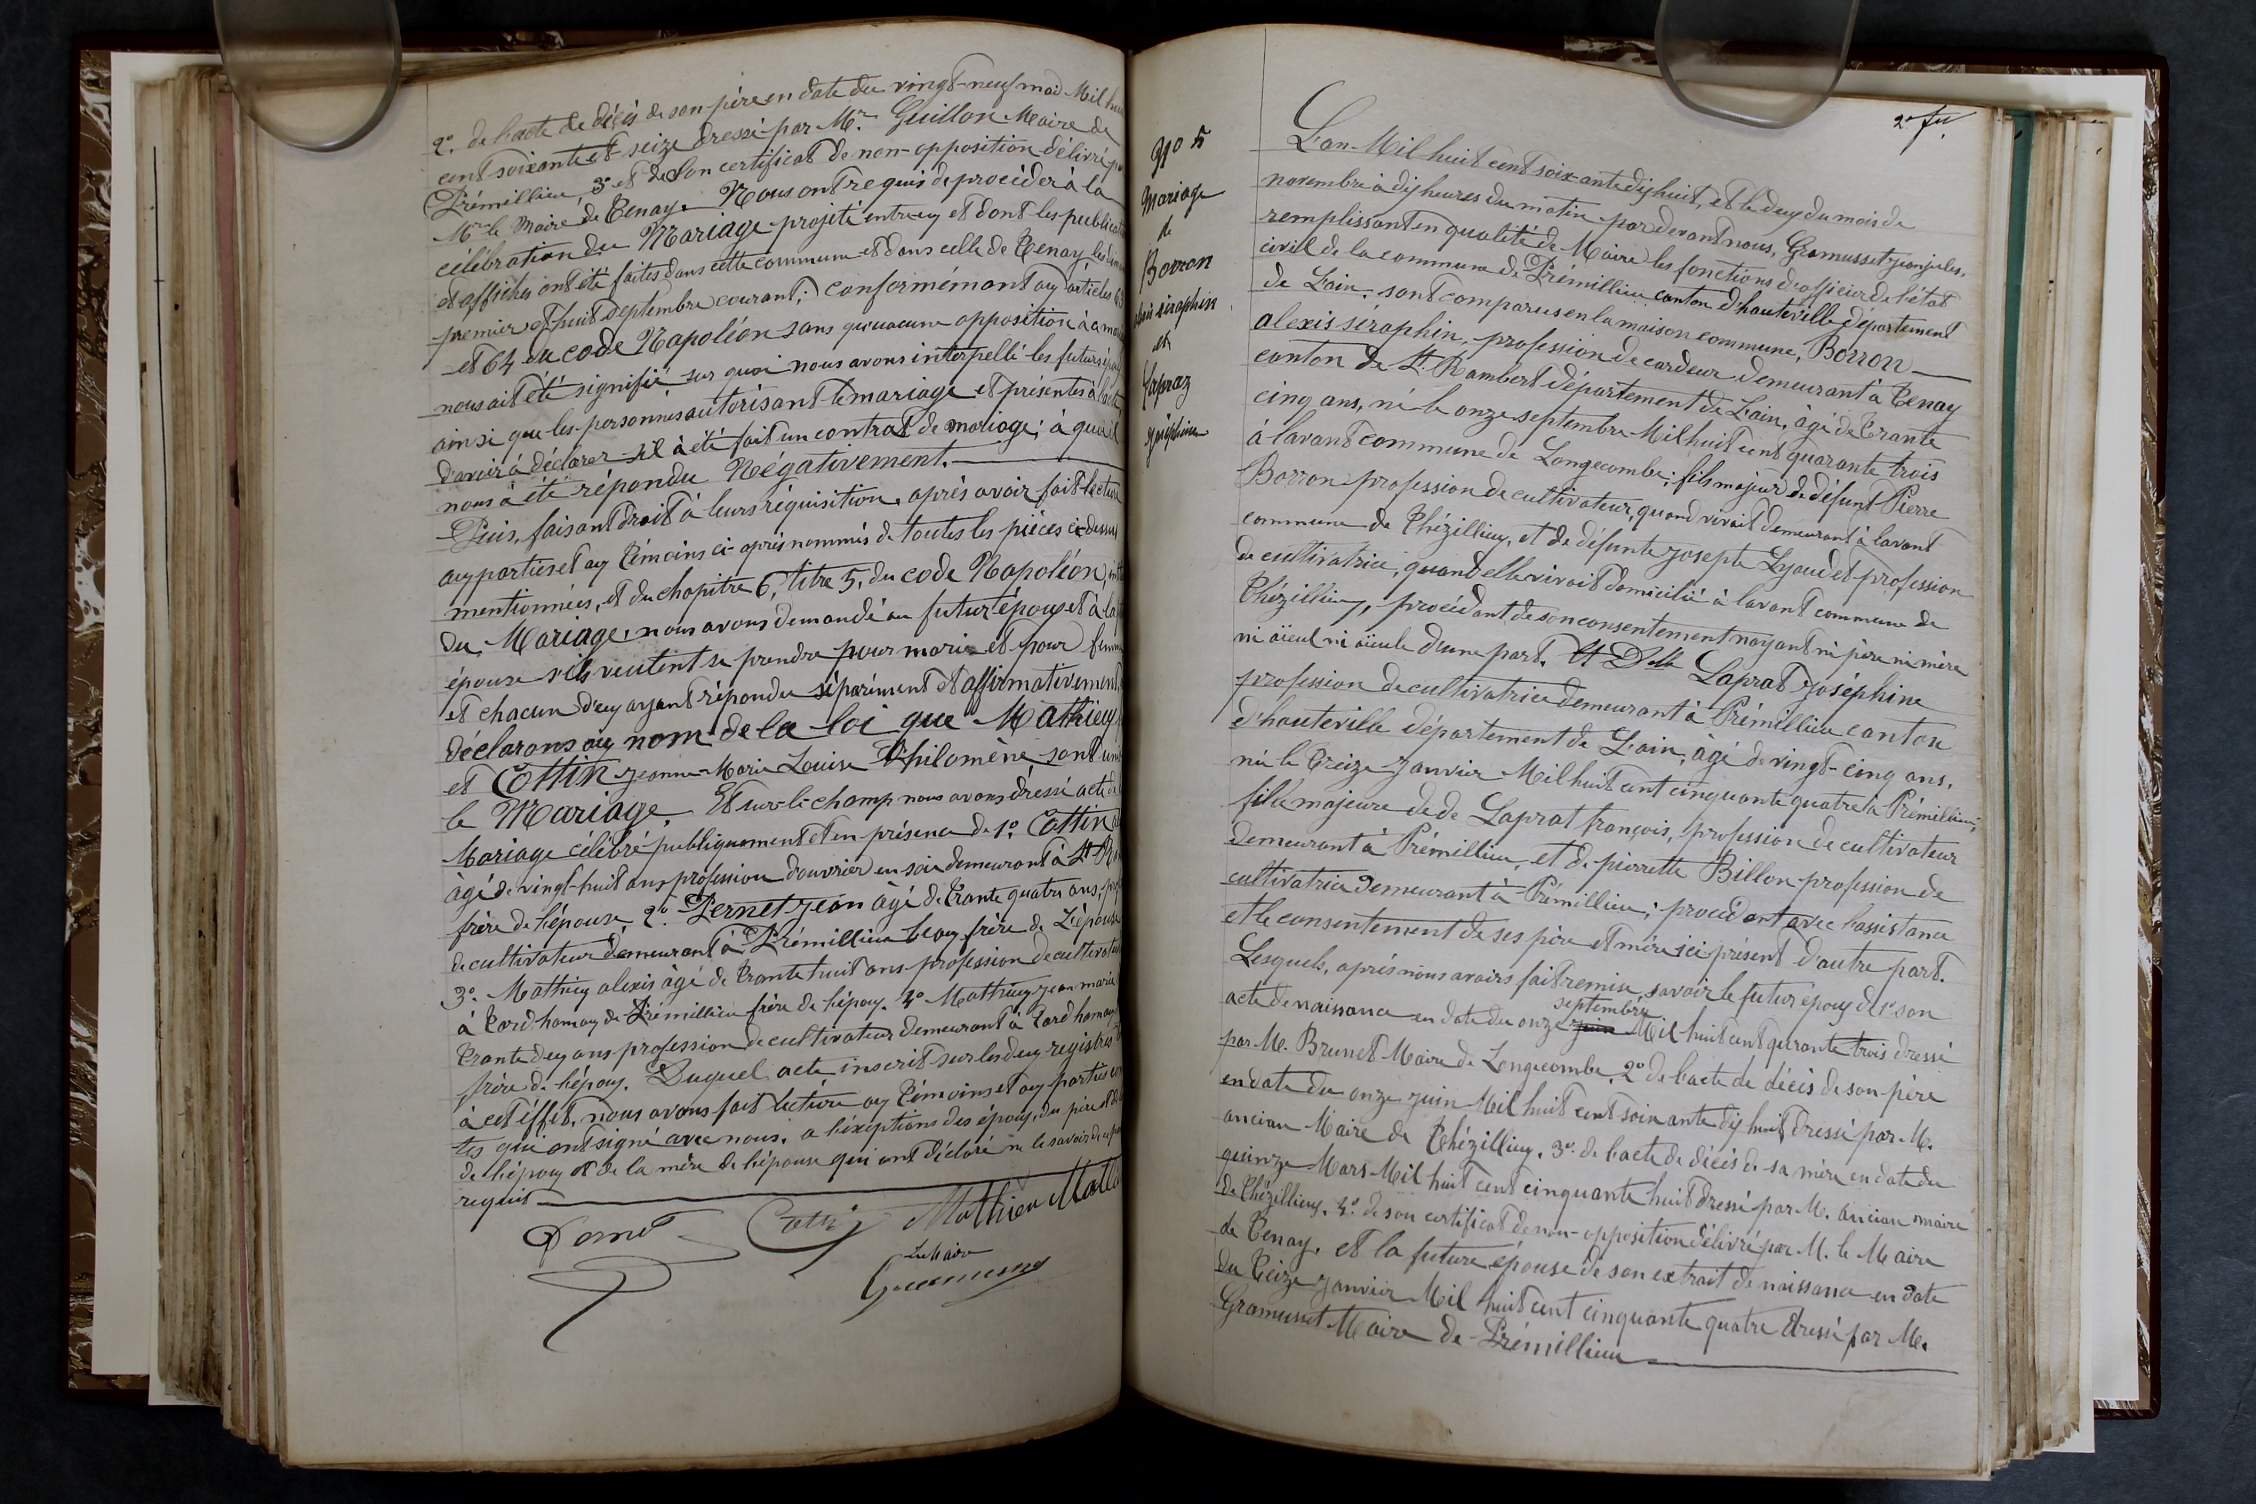 2º. de l'acte de décès de son père en date du vingt-neuf mai Mil huit
cent soixante et seize dressé par Mr. Guillon Maire de
Prémillieu, 3º et de son certificat de non-opposition délivré par
Mr le Maire de Tenay. Nous ont requis de procéder à la
célébration du Mariage projeté entr'eux et dont les publications
et affiches ont été faites dans cette commune et dans celle de Tenay les
premier et huit septembre courant; conformémant aux articles 63
et 64 du code Napoléon sans qu'aucune opposition à ce mariage
nous ait été signifié sur quoi nous avons interpellé les futurs époux
ainsi que les personnes autorisant le mariage et présentes à l'acte
d'avoir à déclarer s'il à été fait un contrat de mariage; à quoi il
nous à été répondu Négativement.
Puis, faisant droit à leurs réquisition, après avoir fait lecture
aux parties et aux témoins ci-après nommés de toutes les pièces ci-dessus
mentionnées, et du chapitre 6, titre 5, du code Napoléon,
du Mariage, nous avons demandé au futur époux et à la
épouse s'ils veulent se prendre pour mari et pour femme
et chacun d'eux ayant répondu séparément et affirmativement,
déclarons au nom de la loi que Mathieu
et Cottin Jeanne-Marie Louise Philomène sont unis
le Mariage. Et sur-le-champ nous avons dressé acte de
Mariage célébré publiquement et en présence de 1º. Cottin
âgé de vingt-huit ans profession d'ouvrier en soie demeurant à St R
frère de l'épouse, 2º. Pernet Jean âgé de trante quatre ans,
de cultivateur demeurant à Prémillieu beau frère de L'épouse
3º. Mathieu alexis âgé de trante huit ans profession de cultivateur
à tardhomay de Prémillieu frère de l'époux. 4º Mathieu Jean marie
trante deux ans profession de cultivateur demeurant à tardhomay
frère de l'époux. Duquel acte inscrit sur les deux registres
à cet éffet, nous avons fait lecture aux témoins et aux parties
tes qui ont signé avec nous. a l'exeptions des époux, du père et de
de l'époux et de la mère de l'épouse qui ont déclaré ne le savoir de ce
requis
Pernet Cottin Mathieu
Le Maire
Gramusset
2e fu.
Nº 5
Mariage
de
Borron
alexis séraphin
et
Lapraz
joséphine
L'an Mil huit cent soixante dix huit, et le deux du mois de
novembre à dix heures du matin par devant nous, Gramusset Jean jules,
remplissant en qualité de Maire les fonctions d'officier de l'état
civil de la commune de Prémillieu canton d'hauteville département
de L'ain, sont comparus en la maison commune, Borron
alexis séraphin, profession de cardeur demeurant à Tenay
canton de St. Rambert département de L'ain, âgé de trante
cinq ans, né le onze septembre Mil huit cent quarante trois
à lavant commune de Longecombe; fils majeur de défunt Pierre
Borron profession de cultivateur, quand vivait demeurant à lavant
commune de Thézillieu, et de défunte Josepte Lyaudet profession
de cultivatrice, quand elle vivait domicilié à lavant commune de
Thézillieu, procédant de son consentement n'ayant ni père ni mère
ni aïeul ni aïeule d'une part. Et Delle Laprat Joséphine
profession de cultivatrice demeurant à Prémillieu canton
d'hauteville département de L'ain, âgé de vingt-cinq ans,
née le treize Janvier Mil huit cent cinquante quatre à Prémillieu;
fille majeure de de Laprat françois, profession de cultivateur
demeurant à Prémillieu, et de pierrette Billon profession de
cultivatrice demeurant à Prémillieu; procédant avec l'assistance
et le consentement de ses père et mère ici présent d'autre part.
Lesquels, après nous avoirs fait remise, savoir le futur époux de 1º son
acte de naissance en date du onze juin septembre Mil huit cent qurante trois dressé
par M. Brunet Maire de Longecombe, 2º de l'acte de décès de son père
en date du onze juin Mil huit cent soixante dix huit dressé par M.
ancien Maire de Thézillieu, 3º. de l'acte de décès de sa mère en date du
quinze Mars Mil huit cent cinquante huit dressé par M. ancien maire
de Thézillieu, 4º. de son certificat de non-opposition délivré par M. le Maire
de Tenay, et la future épouse de son extrait de naissance en date
du treize Janvier Mil huit cent cinquante quatre dressé par M.
Gramusset Maire de Prémillieu